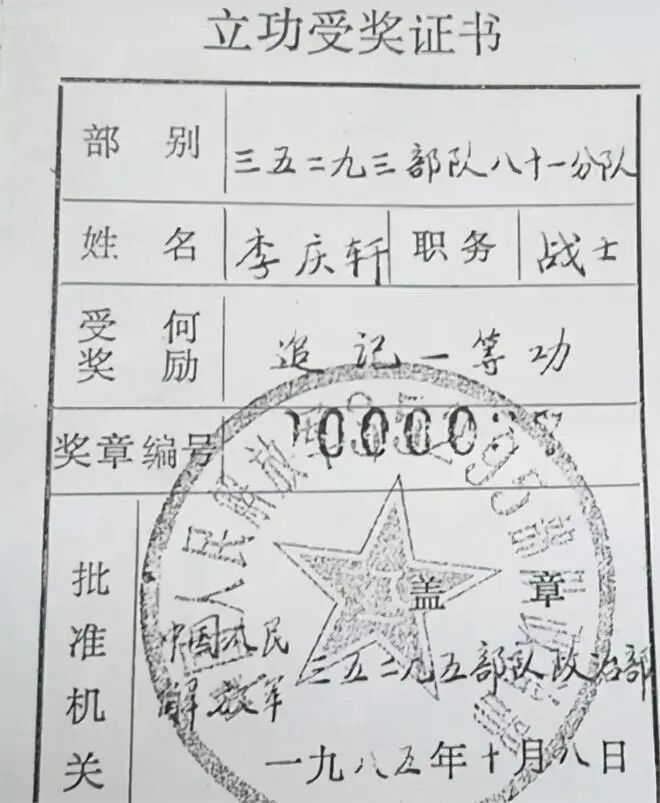 立功受奖证书
部别 三五二九三部队八十一分队
姓名 李庆轩 职务 战士
受何奖励 追记一等功
奖章编号
批准机关 盖章
中国人民解放军 三五二九五部队政治部
一九八五年十月八日